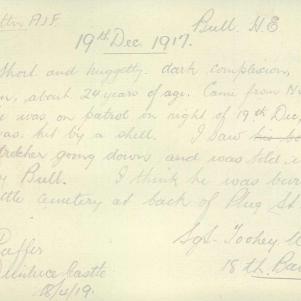 Bull. H.E
19th Dec 1917.
Short and nuggetty. dark complexion,
about 24 years of age. Came from
was on patrol on night of 19th Dec,
was hit by a shell. I saw his
stretcher going down and was told
Bull. I think he was
cemetery at back of Plug St
Sgt. Toohey
18th.
Castle